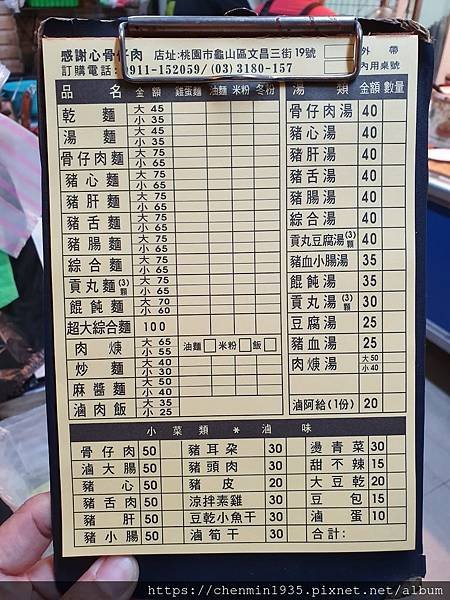 感謝心骨仔肉 店址:桃園市龜山區文昌三街19號 外帶
訂購電話:0911-152059/(03)3180-157 內用桌號
品名 金額 雞蛋麵 油麵 米粉 冬粉
乾麵 大45 小35
湯麵 大45 小35
骨仔肉麵 大75 小65
豬心麵 大75 小65
豬肝麵 大75 小65
豬舌麵 大75 小65
豬腸麵 大75 小65
綜合麵 大75 小65
貢丸麵(3)顆 大75 小65
餛飩麵 大70 小60
超大綜合麵 100
肉焿 大65 小55 油麵 米粉 飯
炒麵 大40 小30
麻醬麵 大50 小40
滷肉飯 大35 小25
湯類 金額 數量
骨仔肉湯 40
豬心湯 40
豬肝湯 40
豬舌湯 40
豬腸湯 40
綜合湯 40
貢丸豆腐湯(3)顆 40
豬血小腸湯 35
餛飩湯 35
貢丸湯(3)顆 30
豆腐湯 25
豬血湯 25
肉焿湯 大50 小40
滷阿給(1份) 20
小菜類 * 滷味
骨仔肉 50 豬耳朶 30 燙青菜 30
滷大腸 50 豬頭肉 30 甜不辣 15
豬心 50 豬皮 20 大豆乾 20
豬舌肉 50 涼拌素雞 30 豆包 15
豬肝 50 豆乾小魚干 30 滷蛋 10
豬小腸 50 滷筍干 30 合計:
https://chenmin1935.pixnet.net/album